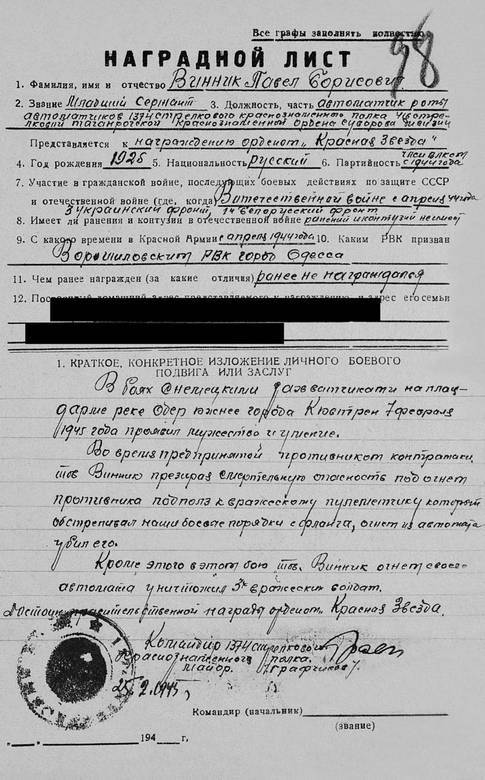 Все графы заполнять полностью
98
НАГРАДНОЙ ЛИСТ
1. Фамилия, имя и отчество Винник Павел Борисович
2. Звание Младший Сержант 3. Должность, часть автоматчик роты
автоматчиков 1374 стрелкового краснознаменного полка
Таганрогской Краснознаменной ордена Суворова дивизии
Представляется к награждению орденом "Красная Звезда"
4. Год рождения 1926 5. Национальность русский 6. Партийность член ВЛКСМ
с 1944 года
7. Участие в гражданской войне, последующих боевых действиях по защите СССР
и отечественной войне (где, когда) В отечественной войне с апреля 44 года
3 Украинский фронт, 1й Белорусский фронт
8. Имеет ли ранения и контузии в отечественной войне ранений и контузий не имеет
9. С какого времени в Красной Армии с апреля 1944 года 10. Каким РВК призван
Ворошиловским РВК город Одесса
11. Чем ранее награжден (за какие отличия) ранее не награждался
12. домашний адрес представляемого к награждению и адрес его семьи
1. КРАТКОЕ, КОНКРЕТНОЕ ИЗЛОЖЕНИЕ ЛИЧНОГО БОЕВОГО
ПОДВИГА ИЛИ ЗАСЛУГ
В боях с немецкими захватчиками на плац-
дарме реке Одер южнее города Кюстрен 7 февраля
1945 года проявил мужество и умение.
Во время предпринятой противником контратаки
тов Винник презирая смертельную опасность под огнем
противника подполз к вражескому пулеметчику который
обстреливал наши боевые порядки с фланга, огнем из автомата
убил его.
Кроме этого в этом бою тов. Винник огнем своего
автомата уничтожил 3х вражеских солдат.
Достоин правительственной награды орденом Красная Звезда.
Командир 1374 стрелкового
Краснознаменного полка.
майор /Графчиков/.
25.2.1945г
Командир (начальник)
(звание)
194 г.